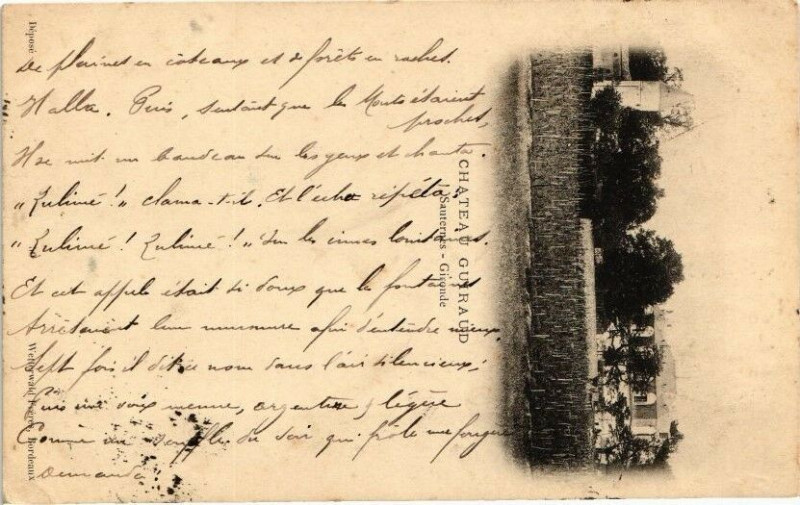 De plaines en côteaux et de forêts en roches.
Il alla. Puis, sentant que les Monts étaient
proches,
Il se mit un bandeau sur les yeux et chanta.
„Zulimé!„ clama-t-il. Et l'écho répéta:
„Zulimé! Zulimé!„ Sur les cimes lointaines.
Et cet appel était si doux que les fontaines
Arrêtaient leur murmure afin d'entendre mieux.
Sept fois il dit ce nom dans l'air silencieux;
Puis une voix menue, argentine & légère
Comme un souffle du soir qui frôle une fougère
Demanda
CHATEAU GUIRAUD
Sauternes - Gironde
Déposé
Wetterwald Frères, Bordeaux